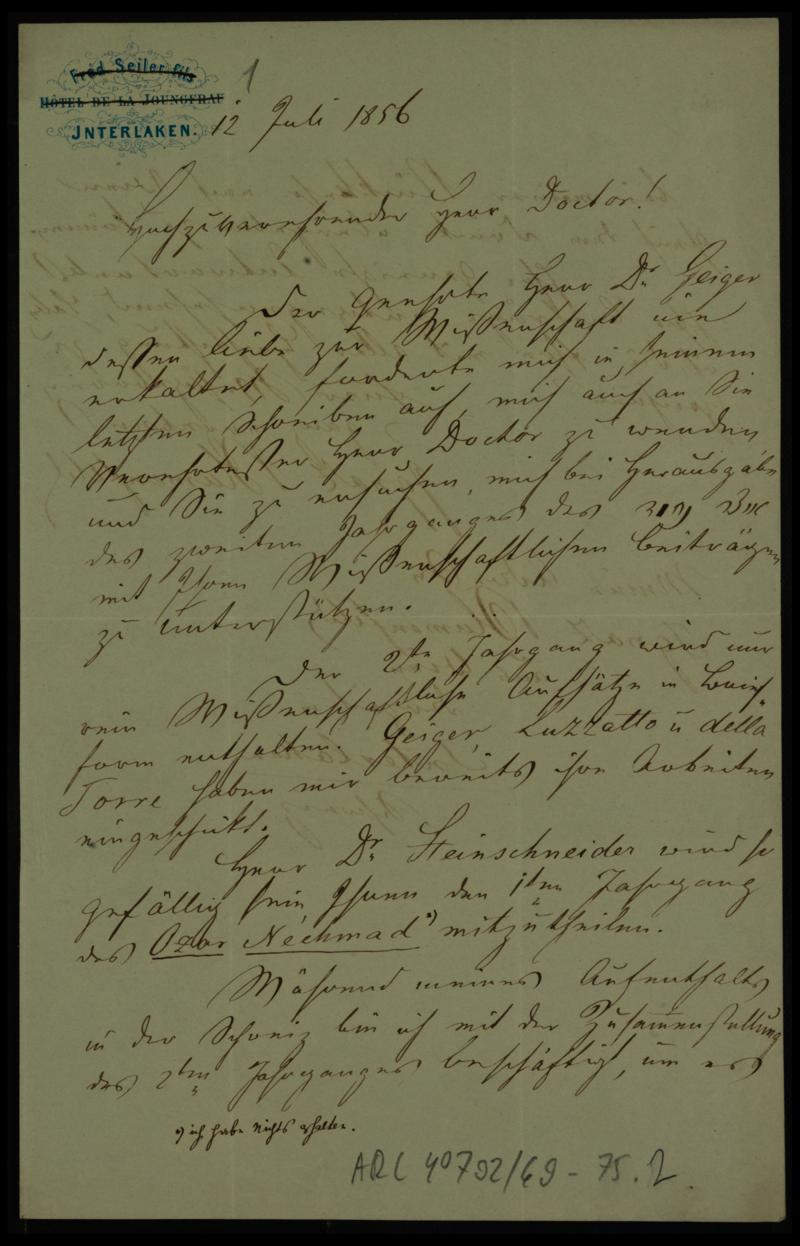 Fréd Seiler fils
HÔTEL DE LA JOUNGFRAU
INTERLAKEN.
1
12 Juli 1856
Hochzuverehrender Herr Doctor!
Der geehrte Herr Dr. Geiger
dessen Liebe zur Wißenschaft nie
erkaltet, forderte mich in seinem
letzten Schreiben auf, mich auch an Sie
Verehrtester Herr Doctor zu wenden
und Sie zu ersuchen, mich bei Herausgabe
des zweiten Jahrganges des אוצר נחמד
mit Ihren Wißenschaftlichen Beiträgen
zu unterstützen.
Der 2te Jahrgang wird nur
rein Wißenschaftliche Aufsätze in Brief-
form enthalten. Geiger, Luzzatto u della
Torre haben mir bereits ihre Arbeiten
eingeschikt.
Herr Dr. Steinschneider wird so
gefällig sein Ihnen den 1ten Jahrgang
des Ozar Nechmad *) mitzutheilen.
Während meines Aufenthalts
in der Schweiz bin ich mit der Zusammenstellung
des 2ten Jahrganges beschäftigt, um es
*) ich habe nichts erhalten.
ARC 4°792/G9-75.2